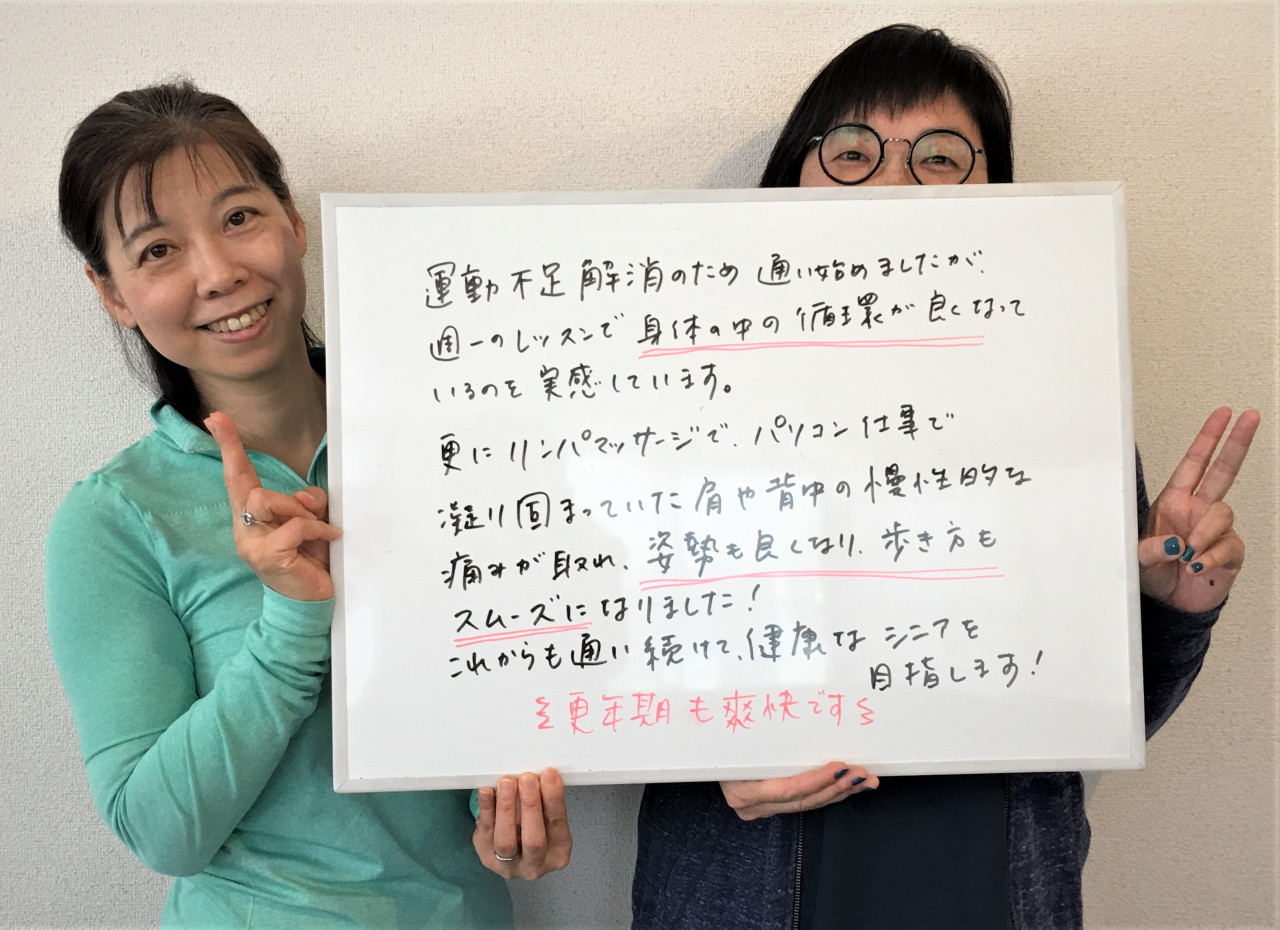 運動不足解消のため通い始めましたが、
週一のレッスンで身体の中の循環が良くなって
いるのを実感しています。
更にリンパマッサージで、パソコン仕事で
凝り固まっていた肩や背中の慢性的な
痛みが取れ、姿勢も良くなり、歩き方も
スムーズになりました！
これからも通い続けて、健康なシニアを
目指します！
更年期も爽快です